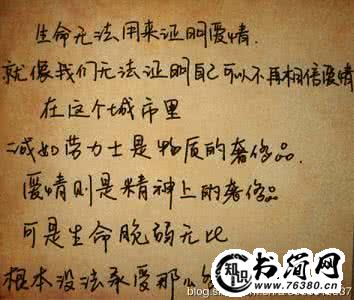 生命无法用来证明爱情.
就像我们无法证明自己可以不再相信爱情
在这个城市里
诚如劳力士是物质的奢侈品.
爱情则是精神上的奢侈品
可是生命脆弱无比
根本没法承受那么
知识
书简网
www.76380.cn
blog.